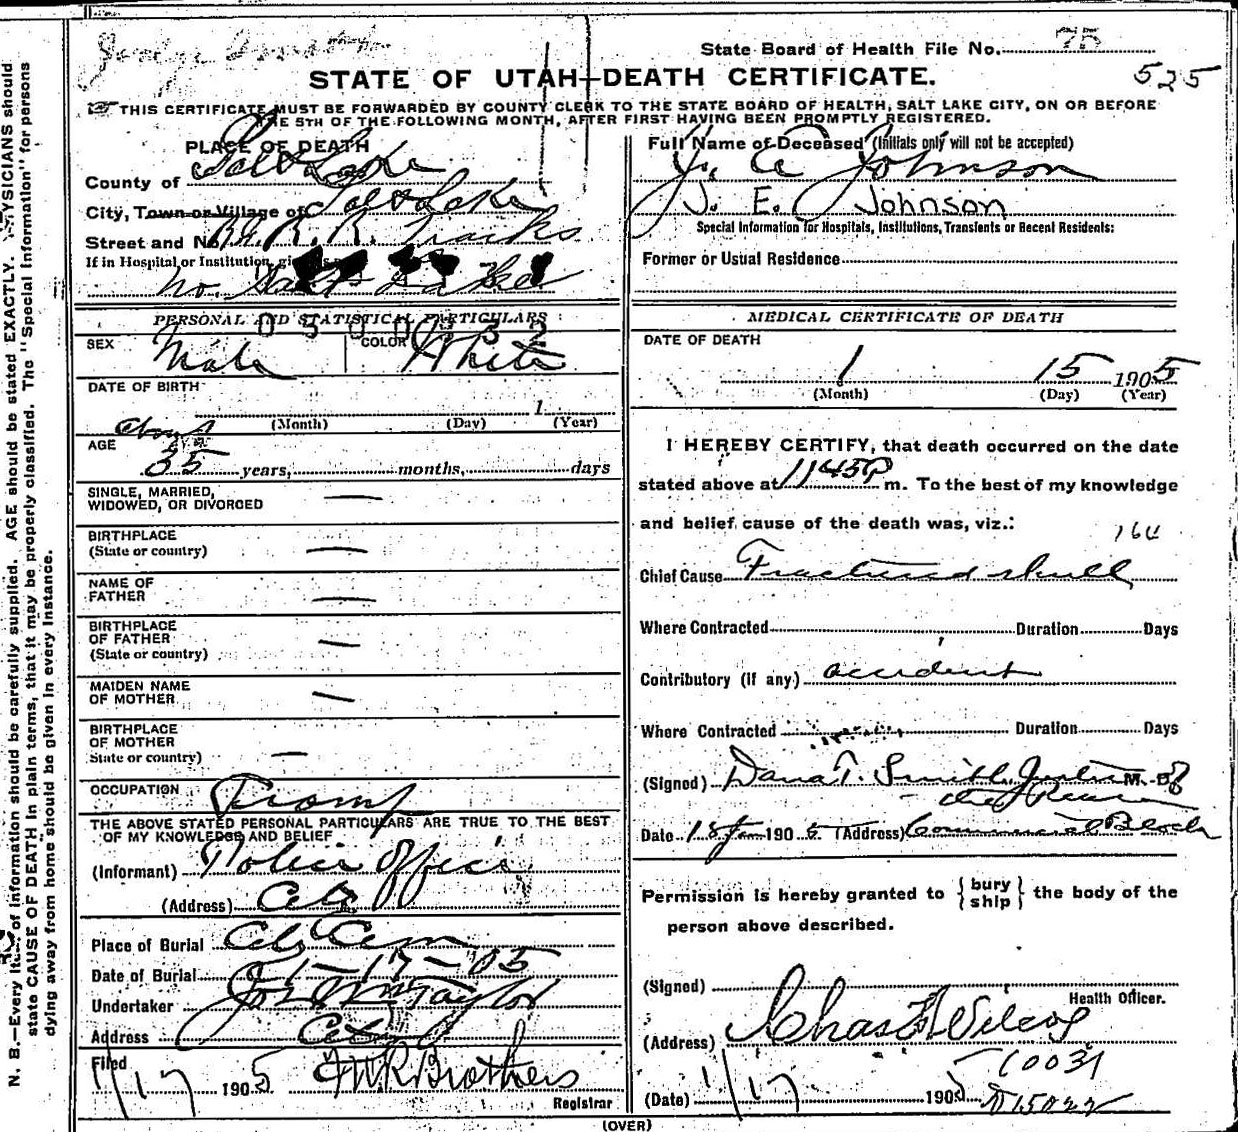 State Board of Health File No. 75
525
STATE OF UTAH—DEATH CERTIFICATE.
THIS CERTIFICATE MUST BE FORWARDED BY COUNTY CLERK TO THE STATE BOARD OF HEALTH, SALT LAKE CITY, ON OR BEFORE
THE 5TH OF THE FOLLOWING MONTH, AFTER FIRST HAVING BEEN PROMPTLY REGISTERED.
PLACE OF DEATH
County of Salt Lake
City, Town or Village of Salt Lake
Street and No. R. R. Tracks
If in Hospital or Institution, give
No. Salt Lake
PERSONAL AND STATISTICAL PARTICULARS
SEX Male COLOR White
DATE OF BIRTH
1
(Month) (Day) (Year)
About
AGE 35 years, months, days
SINGLE, MARRIED,
WIDOWED, OR DIVORCED —
BIRTHPLACE
(State or country) —
NAME OF
FATHER —
BIRTHPLACE
OF FATHER
(State or country) —
MAIDEN NAME
OF MOTHER —
BIRTHPLACE
OF MOTHER
State or country) —
OCCUPATION Tramp
THE ABOVE STATED PERSONAL PARTICULARS ARE TRUE TO THE BEST
OF MY KNOWLEDGE AND BELIEF
(Informant) Police Office
(Address) City
Place of Burial City Cem
Date of Burial 1-17-05
Undertaker Jos Wm Taylor
Address City
Filed 1/17 1905 Brothers
Registrar
Full Name of Deceased (Initials only will not be accepted)
J. E. Johnson
J. E. Johnson
Special Information for Hospitals, Institutions, Transients or Recent Residents:
Former or Usual Residence
MEDICAL CERTIFICATE OF DEATH
DATE OF DEATH
1 15 1905
(Month) (Day) (Year)
I HEREBY CERTIFY, that death occurred on the date
stated above at 1145P m. To the best of my knowledge
and belief cause of the death was, viz.:
164
Chief Cause Fractured skull
Where Contracted Duration Days
Contributory (If any) accident
Where Contracted Duration Days
(Signed) Dana T. Smith, Justice M. D. of
the Peace
Date 18 Jan 1905 (Address) Commercial Block
Permission is hereby granted to {bury ship} the body of the
person above described.
(Signed)
Health Officer.
(Address) Chas F Wilcox
(Date) 1/17 1905
10031
15022
(OVER)
N. B.—Every item of information should be carefully supplied. AGE should be stated EXACTLY. PHYSICIANS should
state CAUSE OF DEATH in plain terms, that it may be properly classified. The "Special Information" for persons
dying away from home should be given in every instance.